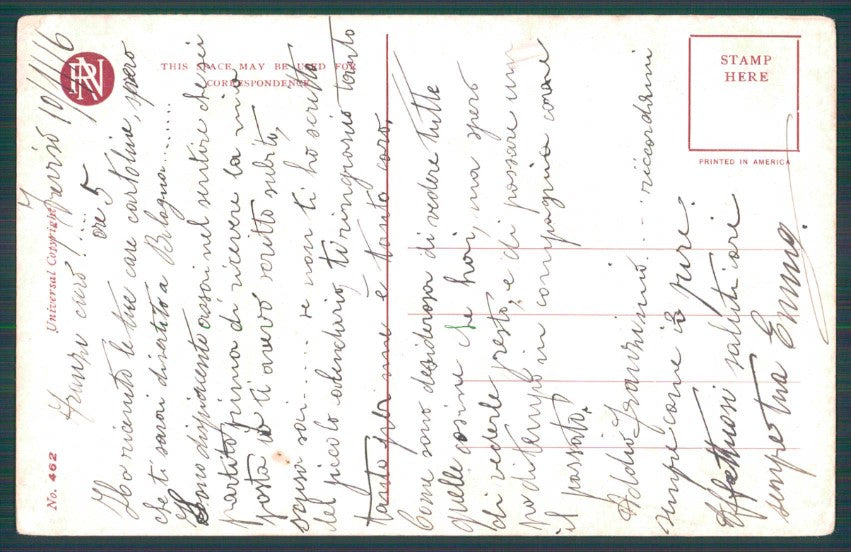 RN
THIS SPACE MAY BE USED FOR
CORRESPONDENCE
STAMP
HERE
PRINTED IN AMERICA
Universal Copyright
No. 462
10/1/16
ore 5
caro!....
Ho ricevuto le tue care cartoline, spero
che ti sarai divertito a Bologna........
Sono dispiacente assai nel sentire che sei
partito prima di ricevere la mia
posta io ti avevo scritto subito,
scusa sai..... se non ti ho scritto
del piccolo calendario, ti ringrazio tanto
tanto per me è tanto caro,
Come sono desiderosa di vedere tutte
quelle cosine che hai, ma spero
di vederle presto, e di passare un
po di tempo in compagnia come
il passato.
Addio Franzino.... riccordami
sempre come io pure.
Affettuosi saluti cari
sempre tua Emma.